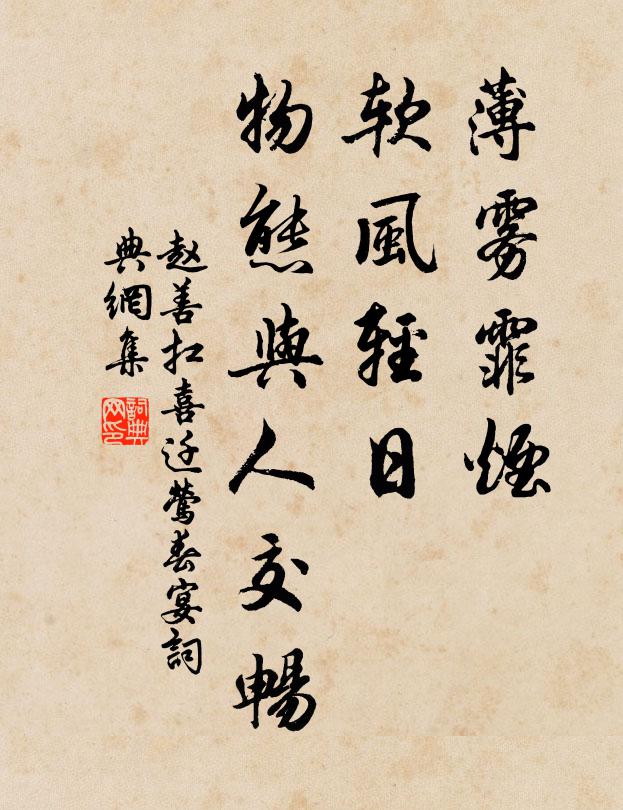 薄雾霏煙
软風輕日
物態與人交暢
赵善扛喜迁莺春宴詞
典網集
詞典網印